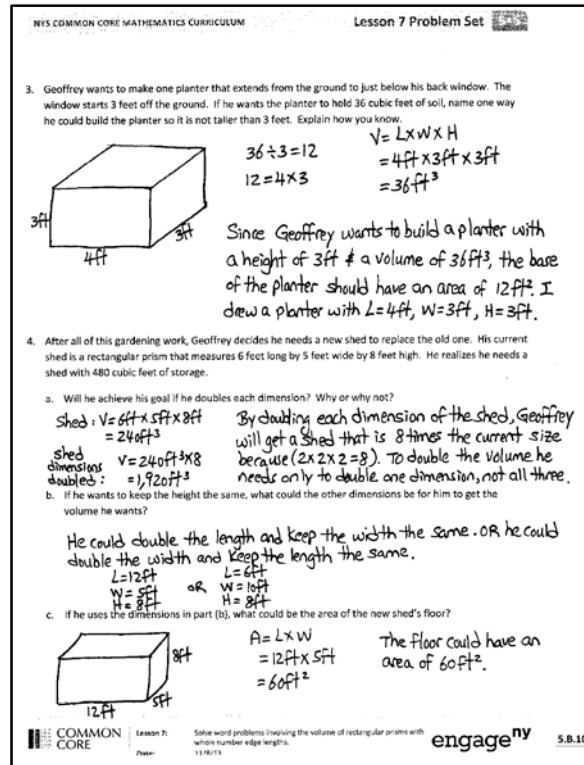 NYS COMMON CORE MATHEMATICS CURRICULUM
Lesson 7 Problem Set
3. Geoffrey wants to make one planter that extends from the ground to just below his back window. The
window starts 3 feet off the ground. If he wants the planter to hold 36 cubic feet of soil, name one way
he could build the planter so it is not taller than 3 feet. Explain how you know.
36÷3=12
12=4×3
V=L×W×H
=4ft×3ft×3ft
=36ft³
3ft
4ft
3ft
Since Geoffrey wants to build a planter with
a height of 3ft & a volume of 36ft³, the base
of the planter should have an area of 12ft². I
drew a planter with L=4ft, W=3ft, H=3ft.
4. After all of this gardening work, Geoffrey decides he needs a new shed to replace the old one. His current
shed is a rectangular prism that measures 6 feet long by 5 feet wide by 8 feet high. He realizes he needs a
shed with 480 cubic feet of storage.
a. Will he achieve his goal if he doubles each dimension? Why or why not?
Shed: V=6ft×5ft×8ft
=240ft³
shed
dimensions
doubled:
V=240ft³×8
=1,920ft³
By doubling each dimension of the shed, Geoffrey
will get a shed that is 8 times the current size
because (2×2×2=8). To double the volume he
needs only to double one dimension, not all three.
b. If he wants to keep the height the same, what could the other dimensions be for him to get the
volume he wants?
He could double the length and keep the width the same. OR he could
double the width and keep the length the same.
L=12ft
W=5ft
H=8ft
OR
L=6ft
W=10ft
H=8ft
c. If he uses the dimensions in part (b), what could be the area of the new shed's floor?
8ft
5ft
12ft
A=L×W
=12ft×5ft
=60ft²
The floor could have an
area of 60ft².
COMMON
CORE
Lesson 7:
Solve word problems involving the volume of rectangular prisms with
whole number edge lengths.
engageny
5.B.10